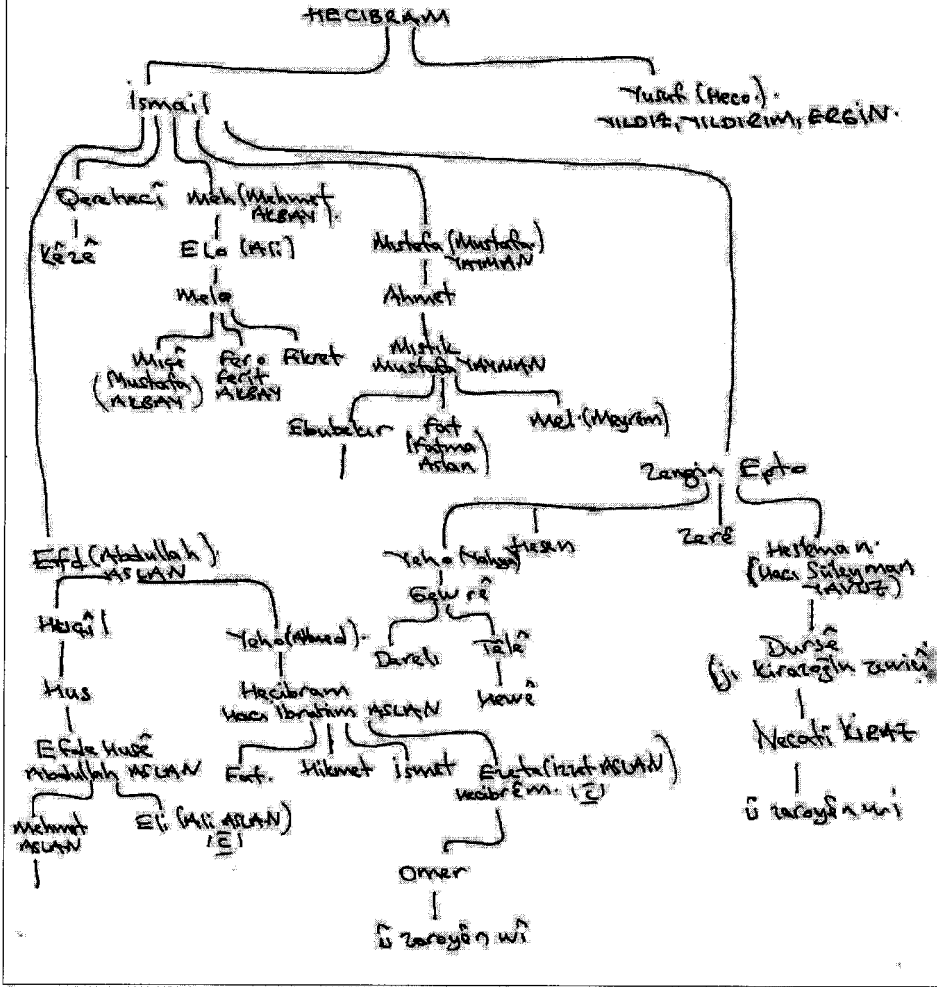 HECIBRAM
İsmail
Yusuf (Heco).
YILDIZ, YILDIRIM, ERGİN.
Qerehecî
Kêzê
Meh (Mehmet
AKBAY).
Elo (Ali)
Melo
Mıçê
(Mustafa)
AKBAY)
Fero
Ferit
AKBAY
Fikret
Mıstefa (Mustafa)
YAYMAN
Ahmet
Mıstık
Mustafa YAYMAN
Ebubekır
Fat
(Fatma
Aslan)
Mel. (Meyrem)
Zengin Epto
Yeho (Yahya)
Hesen
Zerê
Heslıman.
(Hacı Süleyman
YAVUZ)
Gewrê
Dareli
Têlê
Hewê
Dursê
(jı Kirazoğlu
Necati KIRAZ
û zaroyên wi
Efd (Abdullah).
ASLAN
Hus
Efdê Husê
Abdullah ASLAN
Mehmet
ASLAN
Eli (Ali ASLAN)
Yeho (Ahmed).
Hecibram
Hacı İbrahim ASLAN
Fat.
Hikmet
İsmet
Ezeta (İzzet ASLAN)
Hecibrêm.
Omer
û zaroyên wî